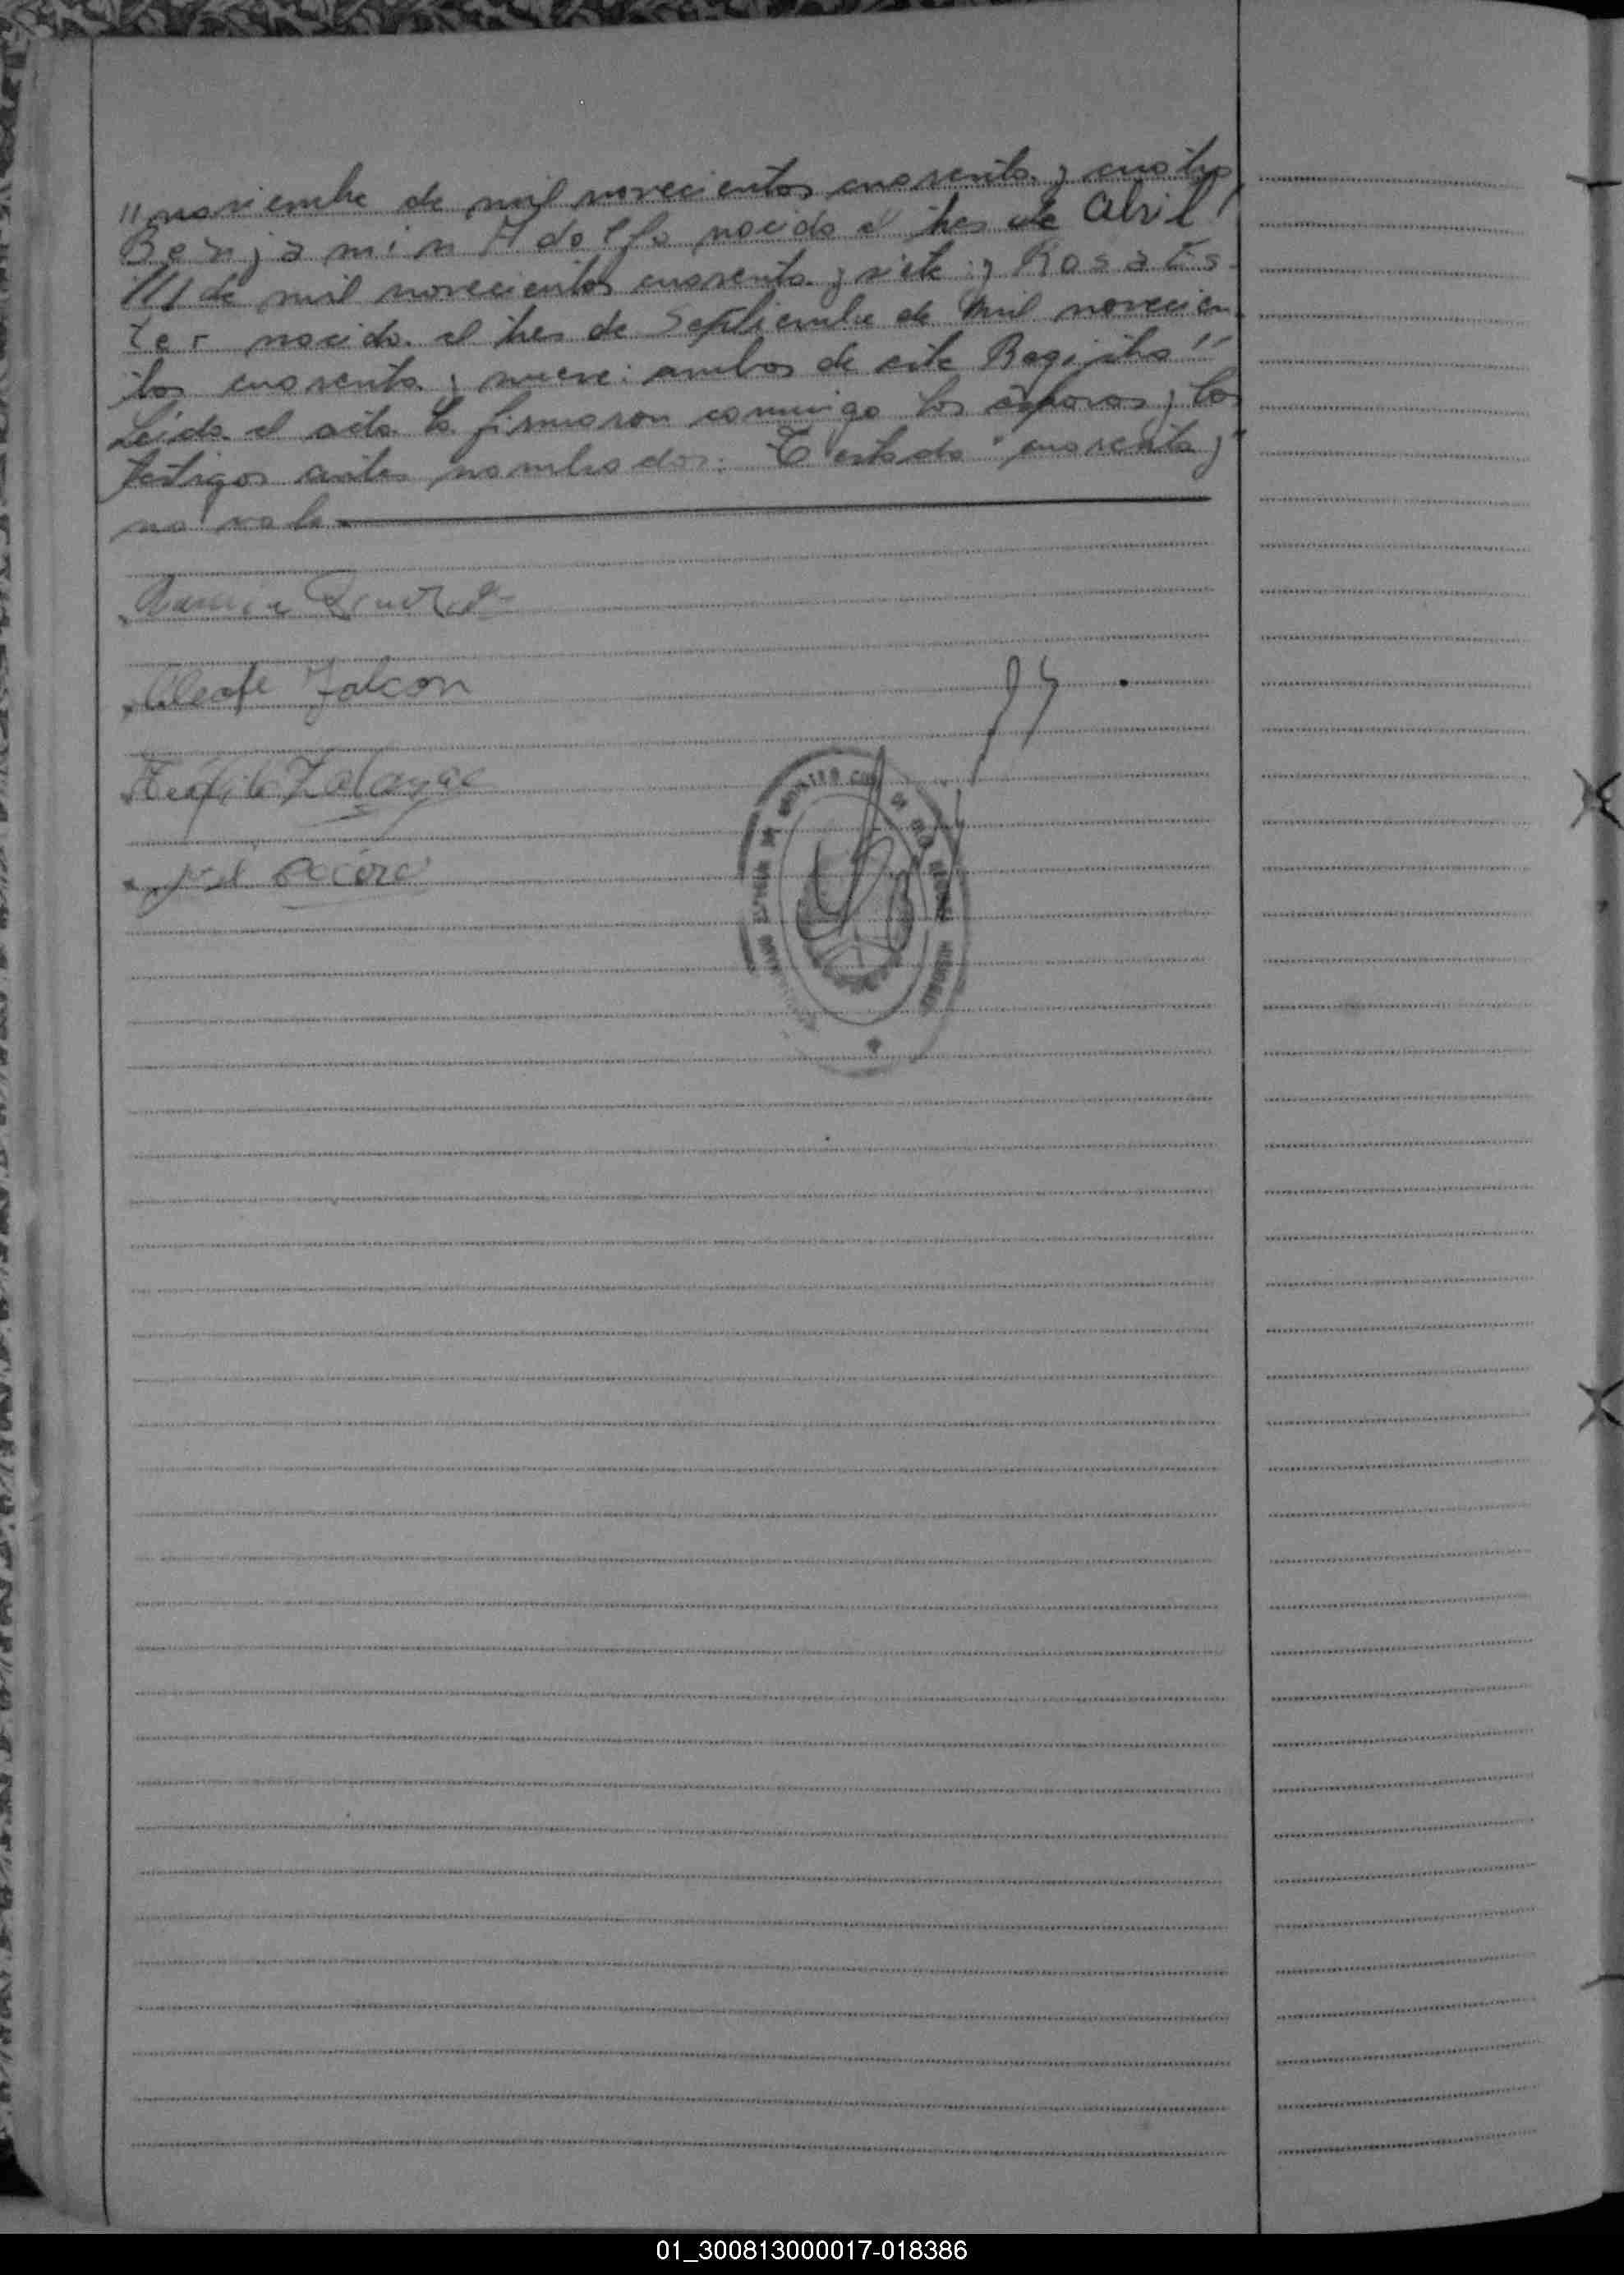 "noviembre de mil novecientos cuarenta y cuatro
Benjamin Adolfo nacido el tres de Abril
/// de mil novecientos cuarenta y siete: y Rosa Es-
ter nacida el tres de Septiembre de mil novecien-
tos cuarenta y nueve: ambos de este Registro"
Leida el acta la firmaron conmigo los esposos y los
testigos antes nombrados: Testado "cuarenta y"
no vale.
Cleofe Falcon
Teofilo Zalazar
01_300813000017-018386